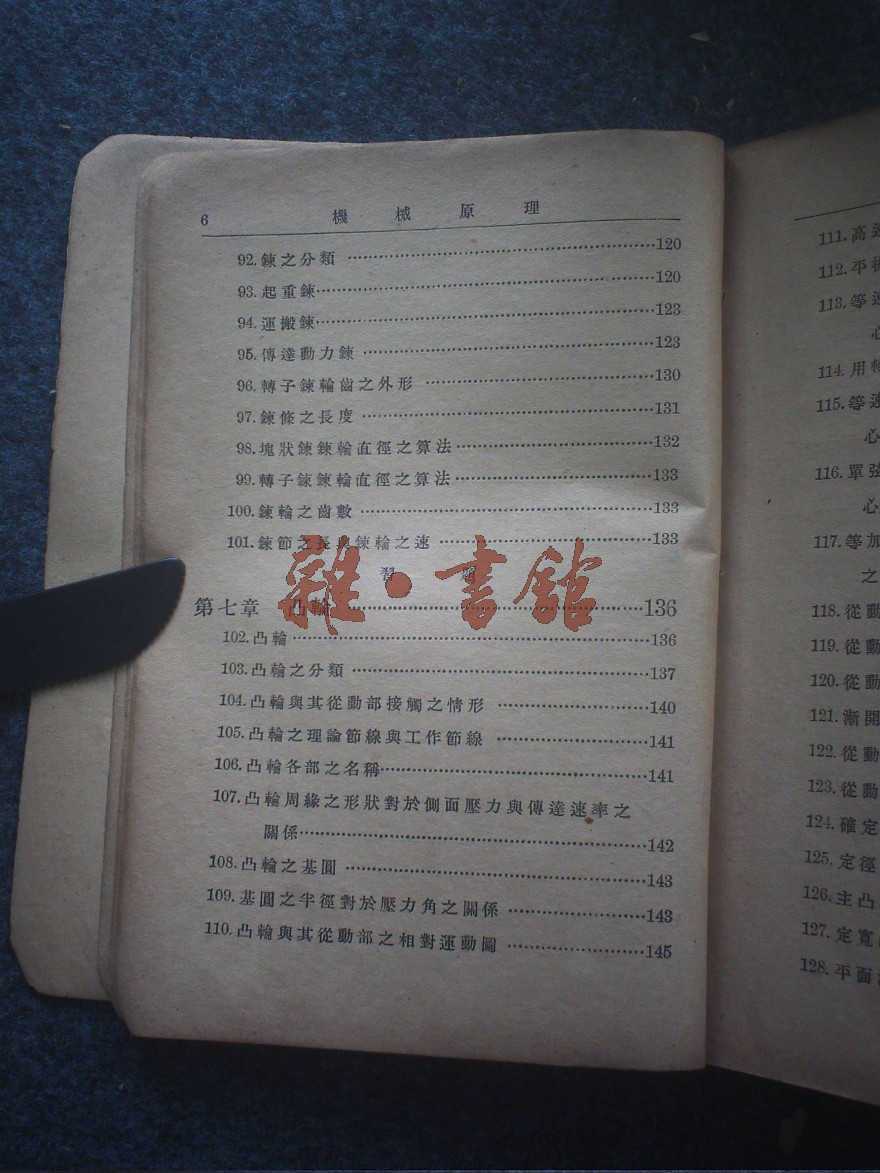 6 機械原理
92.鍊之分類 ………120
93.起重鍊………120
94.運搬鍊………123
95.傳達動力鍊………123
96.轉子鍊輪齒之外形………130
97.鍊條之長度………131
98.塊狀鍊鍊輪直徑之算法………132
99.轉子鍊鍊輪直徑之算法………133
100.鍊輪之齒數………133
101.鍊節之長與鍊輪之速………133
習題
第七章 凸輪………136
102.凸輪………136
103.凸輪之分類………137
104.凸輪與其從動部接觸之情形………140
105.凸輪之理論節線與工作節線………141
106.凸輪各部之名稱………141
107.凸輪周緣之形狀對於側面壓力與傳達速率之
關係………142
108.凸輪之基圓………143
109.基圓之半徑對於壓力角之關係………143
110.凸輪與其從動部之相對運動圖………145
雜·書館
111.高速
112.平板
113.等速
心
114.用
115.等速
心
116.單弦
心
117.等加
之
118.從動
119.從動
120.從動
121.漸開
122.從動
123.從動
124.確定
125.定徑
126.主凸
127.定寬
128.平面